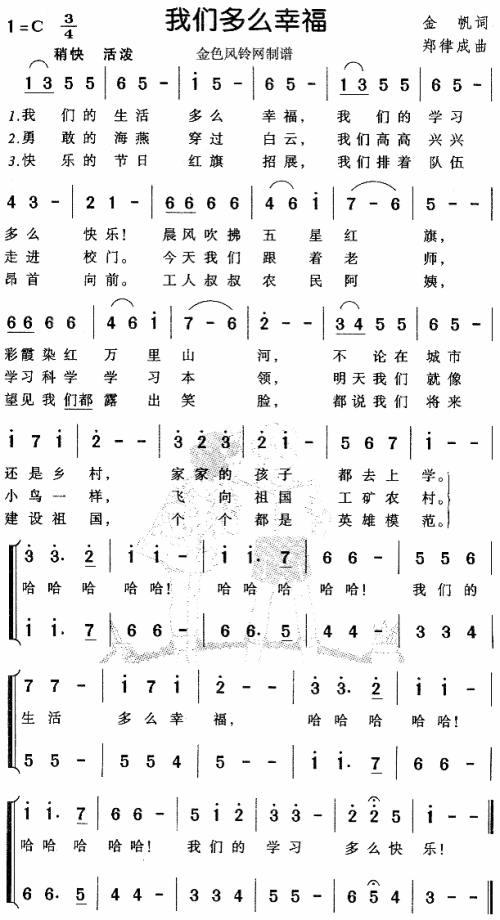 我们多么幸福
1=C 3/4
金 帆 词
郑律成 曲
稍快 活泼
金色风铃网制谱
1 3 5 5 | 6 5 - | i 5 - | 6 5 - | 1 3 5 5 | 6 5 - |
1.我 们的 生活 多么 幸福, 我 们的 学习
2.勇 敢的 海燕 穿过 白云, 我们高高 兴兴
3.快 乐的 节日 红旗 招展, 我们排着 队伍
4 3 - | 2 1 - | 6 6 6 6 | 4 6 i | 7 - 6 | 5 - - |
多么 快乐! 晨风吹拂 五 星 红 旗,
走进 校门。 今天我们 跟 着 老 师,
昂首 向前。 工人叔叔 农 民 阿 姨,
6 6 6 6 | 4 6 i | 7 - 6 | 2 - - | 3 4 5 5 | 6 5 - |
彩霞染红 万 里 山 河, 不 论在 城市
学习科学 学 习 本 领, 明天我们 就像
望见我们都 露 出 笑 脸, 都说我们 将来
i 7 i | 2 - - | 3 2 3 | 2 i - | 5 6 7 | i - - |
还是乡 村, 家家的 孩子 都去上 学。
小鸟一 样, 飞 向 祖国 工矿农 村。
建设祖 国, 个 个 都是 英雄模 范。
3 3. 2 | i i - | i i. 7 | 6 6 - | 5 5 6 |
哈哈 哈 哈哈! 哈哈 哈 哈哈! 我们的
i i. 7 | 6 6 - | 6 6. 5 | 4 4 - | 3 3 4 |
7 7 - | i 7 i | 2 - - | 3 3. 2 | i i - |
生活 多么幸 福, 哈哈 哈 哈哈!
5 5 - | 5 5 4 | 5 - - | i i. 7 | 6 6 - |
i i. 7 | 6 6 - | 5 i 2 | 3 3 - | 2 2 5 | i - - ‖
哈哈 哈 哈哈! 我们的 学习 多么快 乐!
6 6. 5 | 4 4 - | 3 3 4 | 5 5 - | 6 5 4 | 3 - - ‖